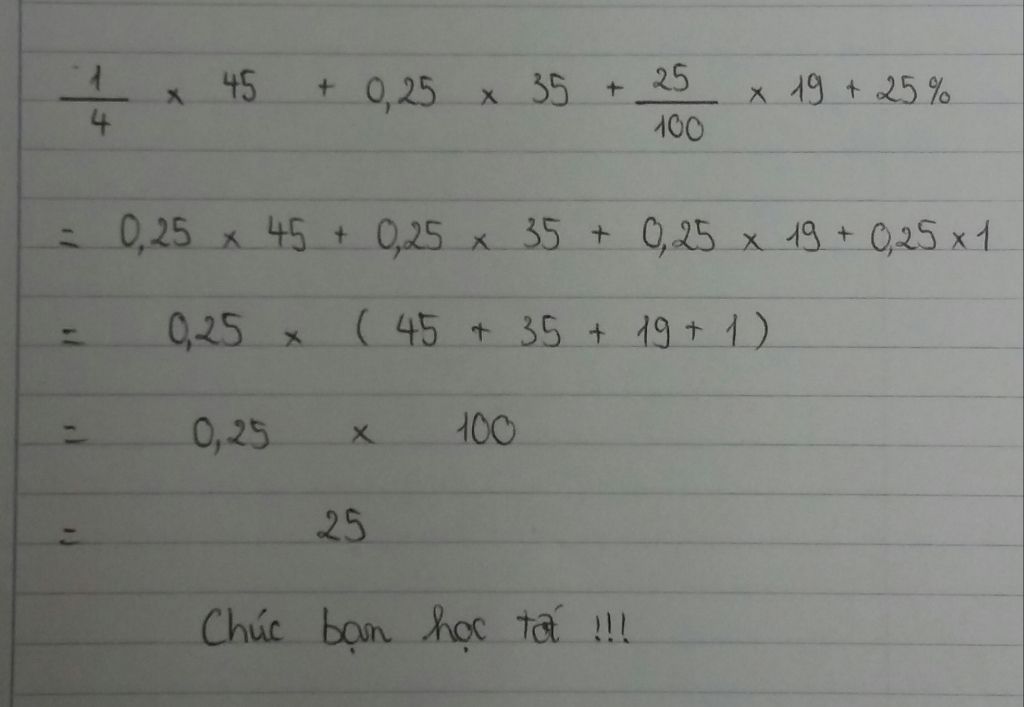 1/4 × 45 + 0,25 × 35 + 25/100 × 19 + 25%
= 0,25 × 45 + 0,25 × 35 + 0,25 × 19 + 0,25 × 1
= 0,25 × ( 45 + 35 + 19 + 1 )
= 0,25 × 100
= 25
Chúc bạn học tốt !!!